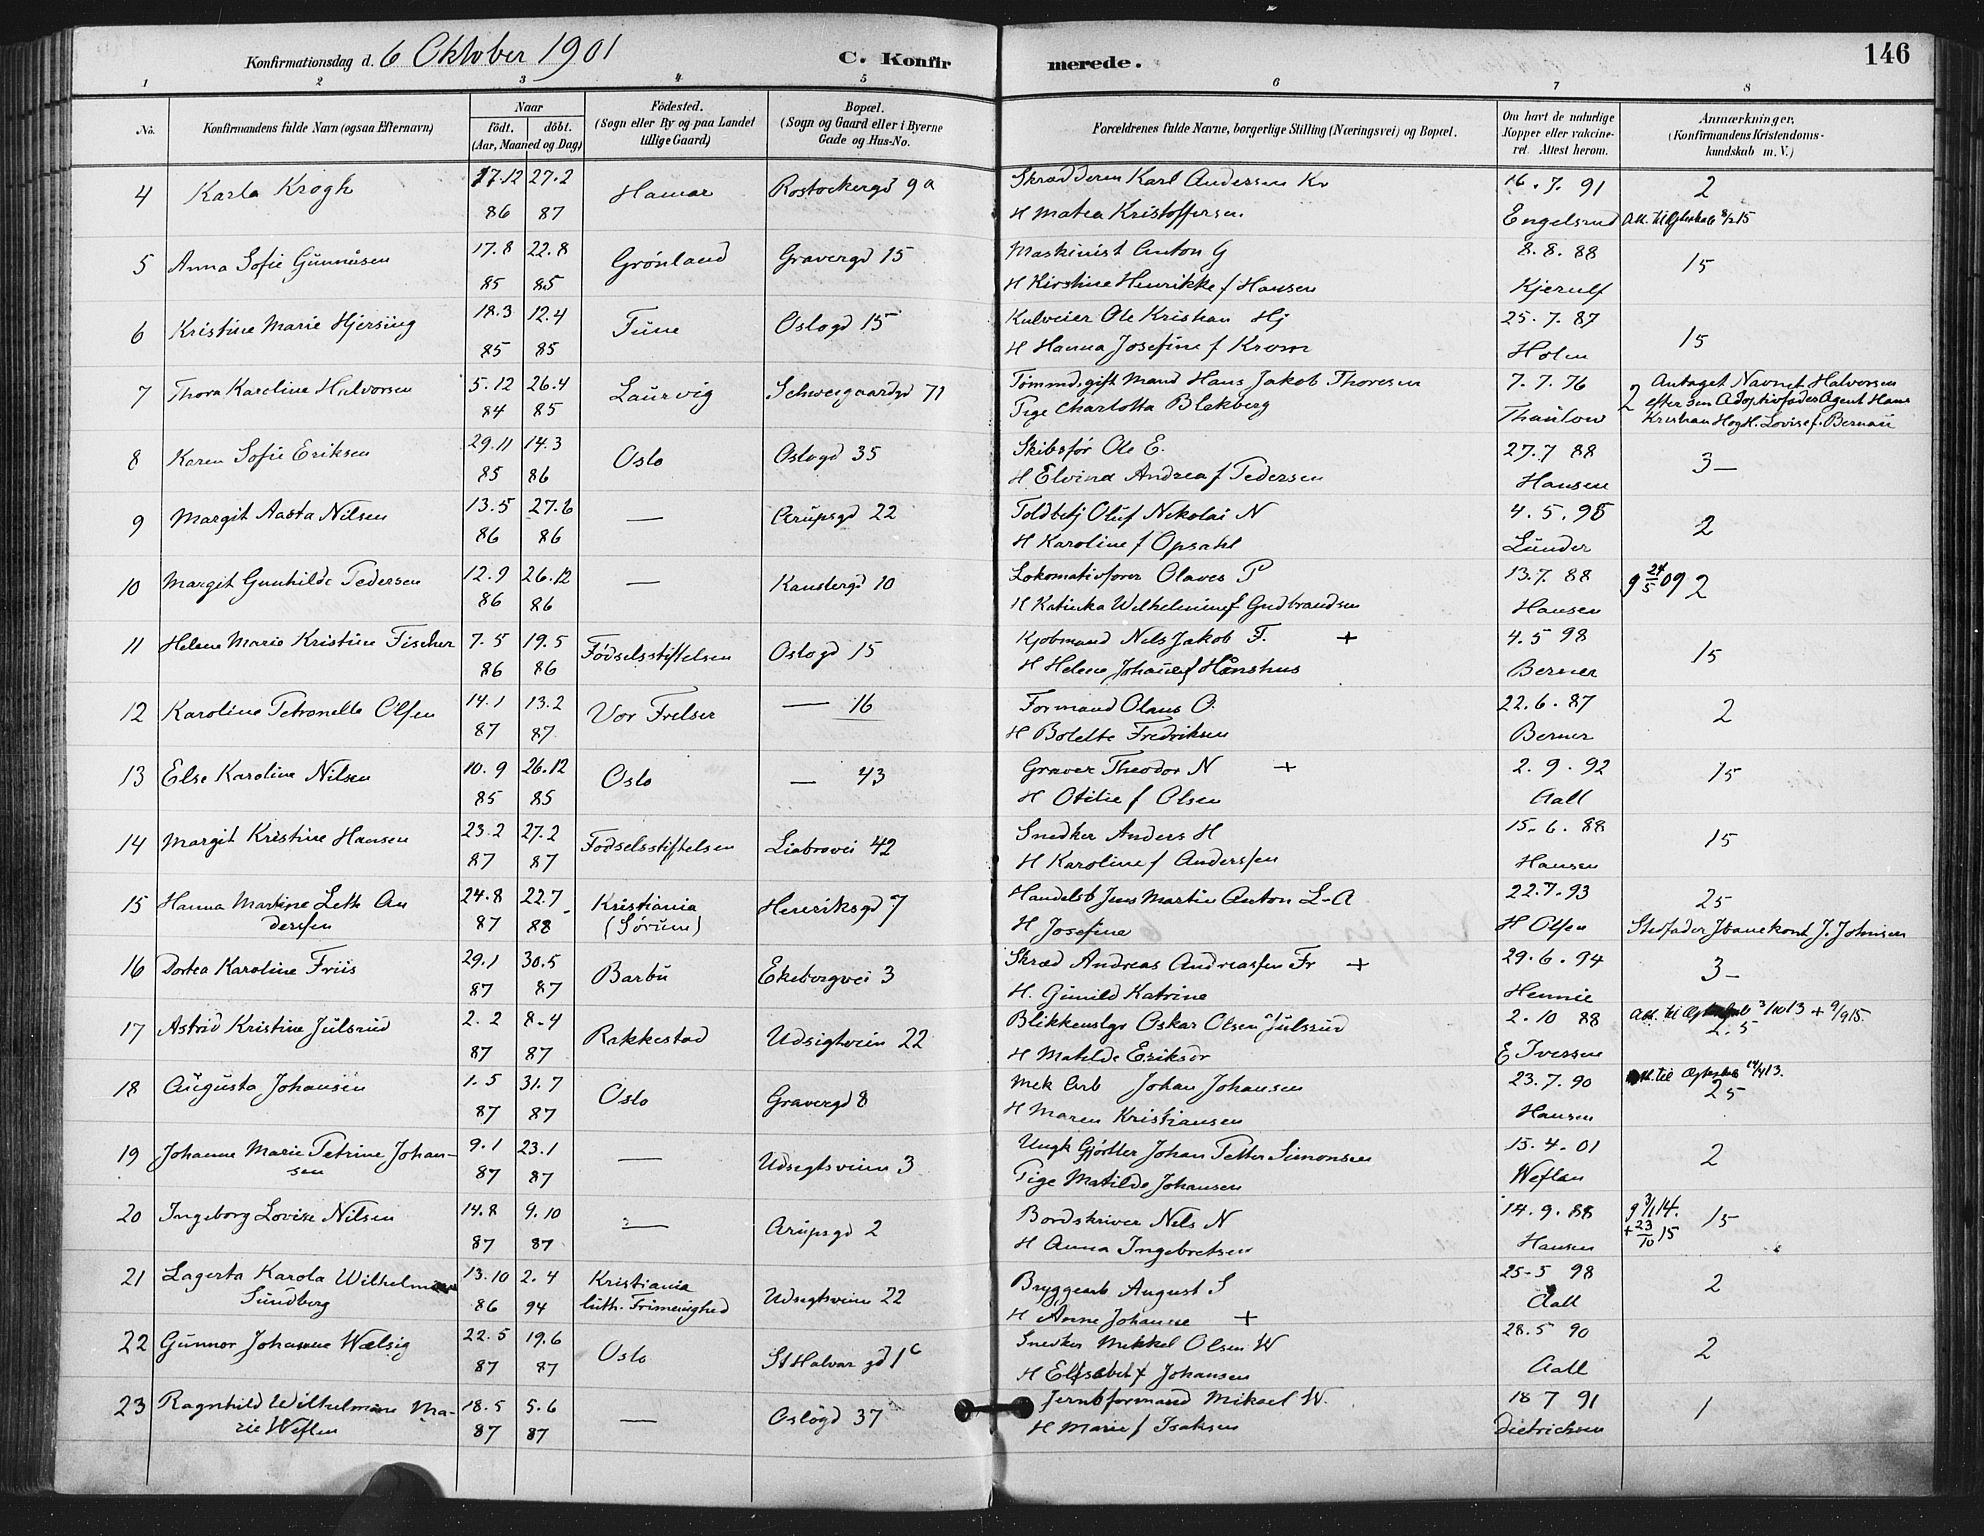 Konfirmationsdag d. 6 Oktober 1901
C. Konfir merede. 146
1 2 3 4 5 6 7 8
No. Konfirmandens fulde Navn (ogsaa Efternavn) Naar födt. döbt. (Aar, Maaned og Dag) Födested. (Sogn eller By og paa Landet tillige Gaard) Bopæl. (Sogn og Gaard eller i Byerne Gade og Hus-No. Forældrenes fulde Navne, borgerlige Stilling (Næringsvei) og Bopæl. Om havt de naturlige Kopper eller vakcineret. Attest herom. Anmærkninger. (Konfirmandens Kristendomskundskab m. V.)
4 Karla Krogh 17.12 27.2 Hamar Rostockergd 9a Skrædderen Karl Andersen Kr 16.7. 91 2
86 87 H Matea Kristoffersen Engelsrud
5 Anna Sofie Gunnüsen 17.8 22.8 Grönland Gravergd 15 Maskinist Anton G 8.8.88 15
85 85 H Kirstine Henrikke f Hansen Kjerulf
6 Kristine Marie Hjersing 18.3 12.4 Tüne Oslogd 15 Kulveier Ole Kristian Hj 25.7.87 15
85 85 H Hanna Josefine f Krom Holen
7 Thora Karoline Halvorsen 5.12 26.4 Laurvig Schweigaardgd 71 Tömmd, gift Mand Hans Jakob Thoresen 7.7.76 2 Antaget Navnet Halvorsen
84 85 Pige Charlotta Blekberg Thaulow efter sin Adoptivfader Agent Hans
Kristian H og H. Lovise f. Bernau
8 Karen Sofie Eriksen 29.11 14.3 Oslo Oslogd 35 Skibsför Ole E. 27.7 88 3-
85 86 H Elvina Andrea f Pedersen Hansen
9 Margit Aasta Nilsen 13.5 27.6 — Arupsgd 22 Toldbetj Oluf Nikolai N 4.5.98 2
86 86 H Karoline f Opsahl Lunder
10 Margit Gunhilde Pedersen 12.9 26.12 — Kanslergd 10 Lokomotivförer Olaves P 13.7.88 g 24/5 09 2
86 86 H Katinka Wilhelmine f Gudbrandsen Hansen
11 Helene Marie Kristine Fischer 7.5 19.5 Födselsstiftelsen Oslogd 15 Kjöbmand Nils Jakob F. + 4.5 98 15
86 86 H Helene Johanne f Hönshus Berner
12 Karoline Petronelle Olsen 14.1 13.2 Vor Frelser — 16 Formand Olaus O. 22.6.87 2
87 87 H Bolette Fredriksen Berner
13 Else Karoline Nilsen 10.9 26.12 Oslo — 43 Graver Theodor N + 2.9.92 15
85 85 H Otilie f Olsen Aall
14 Margit Kristine Hansen 23.2 27.2 Födselsstiftelsen Liabrovei 42 Snedker Anders H 15.6.88 15
87 87 H Karoline f Anderssen Hansen
15 Hanna Martine Leth An 24.8 22.7 Kristiania Henriksgd 7 Handelsb Jens Martin Anton L-A 22.7.93 25
derssen 87 88 (Sörum) H Josefine H Olsen Stedfader Jbanekont J. Johnsen
16 Dortea Karoline Friis 29.1 30.5 Barbu Ekebergvei 3 Skræd Andreas Andreassen Fr + 29.6.94 3-
87 87 H. Gunild Katrine Hennie
17 Astrid Kristine Julsrud 2.2 8.4 Rakkestad Udsigtveien 22 Blikkenslgr Oskar Olsen Julsrud 2.10 88 2.5
87 87 H Matilde Eriksdr E Iversen
18 Augusta Johansen 1.5 31.7 Oslo Gravergd 8 Mek Arb Johan Johansen 23.7.90 25
87 87 H Maren Kristiansen Hansen
19 Johanne Marie Petrine Johan- 9.1 23.1 — Udsigtsveien 3 Ungk Gjörtler Johan Petter Simonsen 15.4.01 2
sen 87 87 Pige Matilde Johansen Weflen
20 Ingeborg Lovise Nilsen 14.8 9.10 — Arupsgd 2 Bordskriver Nels N 14.9.88 g 3/1 14. 15
87 87 H Anna Ingebretsen Hansen + 23/10 15
21 Lagerta Karola Wilhelmine 13.10 2.4 Kristiania Udsigtsveien 22 Bryggearb August S 25-5 98 2
Sundberg 86 94 luth. Frimenighed H Anne Johanne + Aall
22 Gunnor Johanne Wælsig 22.5 19.6 Oslo St Halvar gd 1c Snedker Mikkel Olsen W 28.5 90 2
87 87 H Elisabet f Johansen Aall
23 Ragnhild Wilhelmine Ma- 18.5 5.6 — Oslogd 37 Jernbformand Mikael W. 18 7 91 1
rie Weflen 87 87 H Marie f Isaksen Dietrichsen